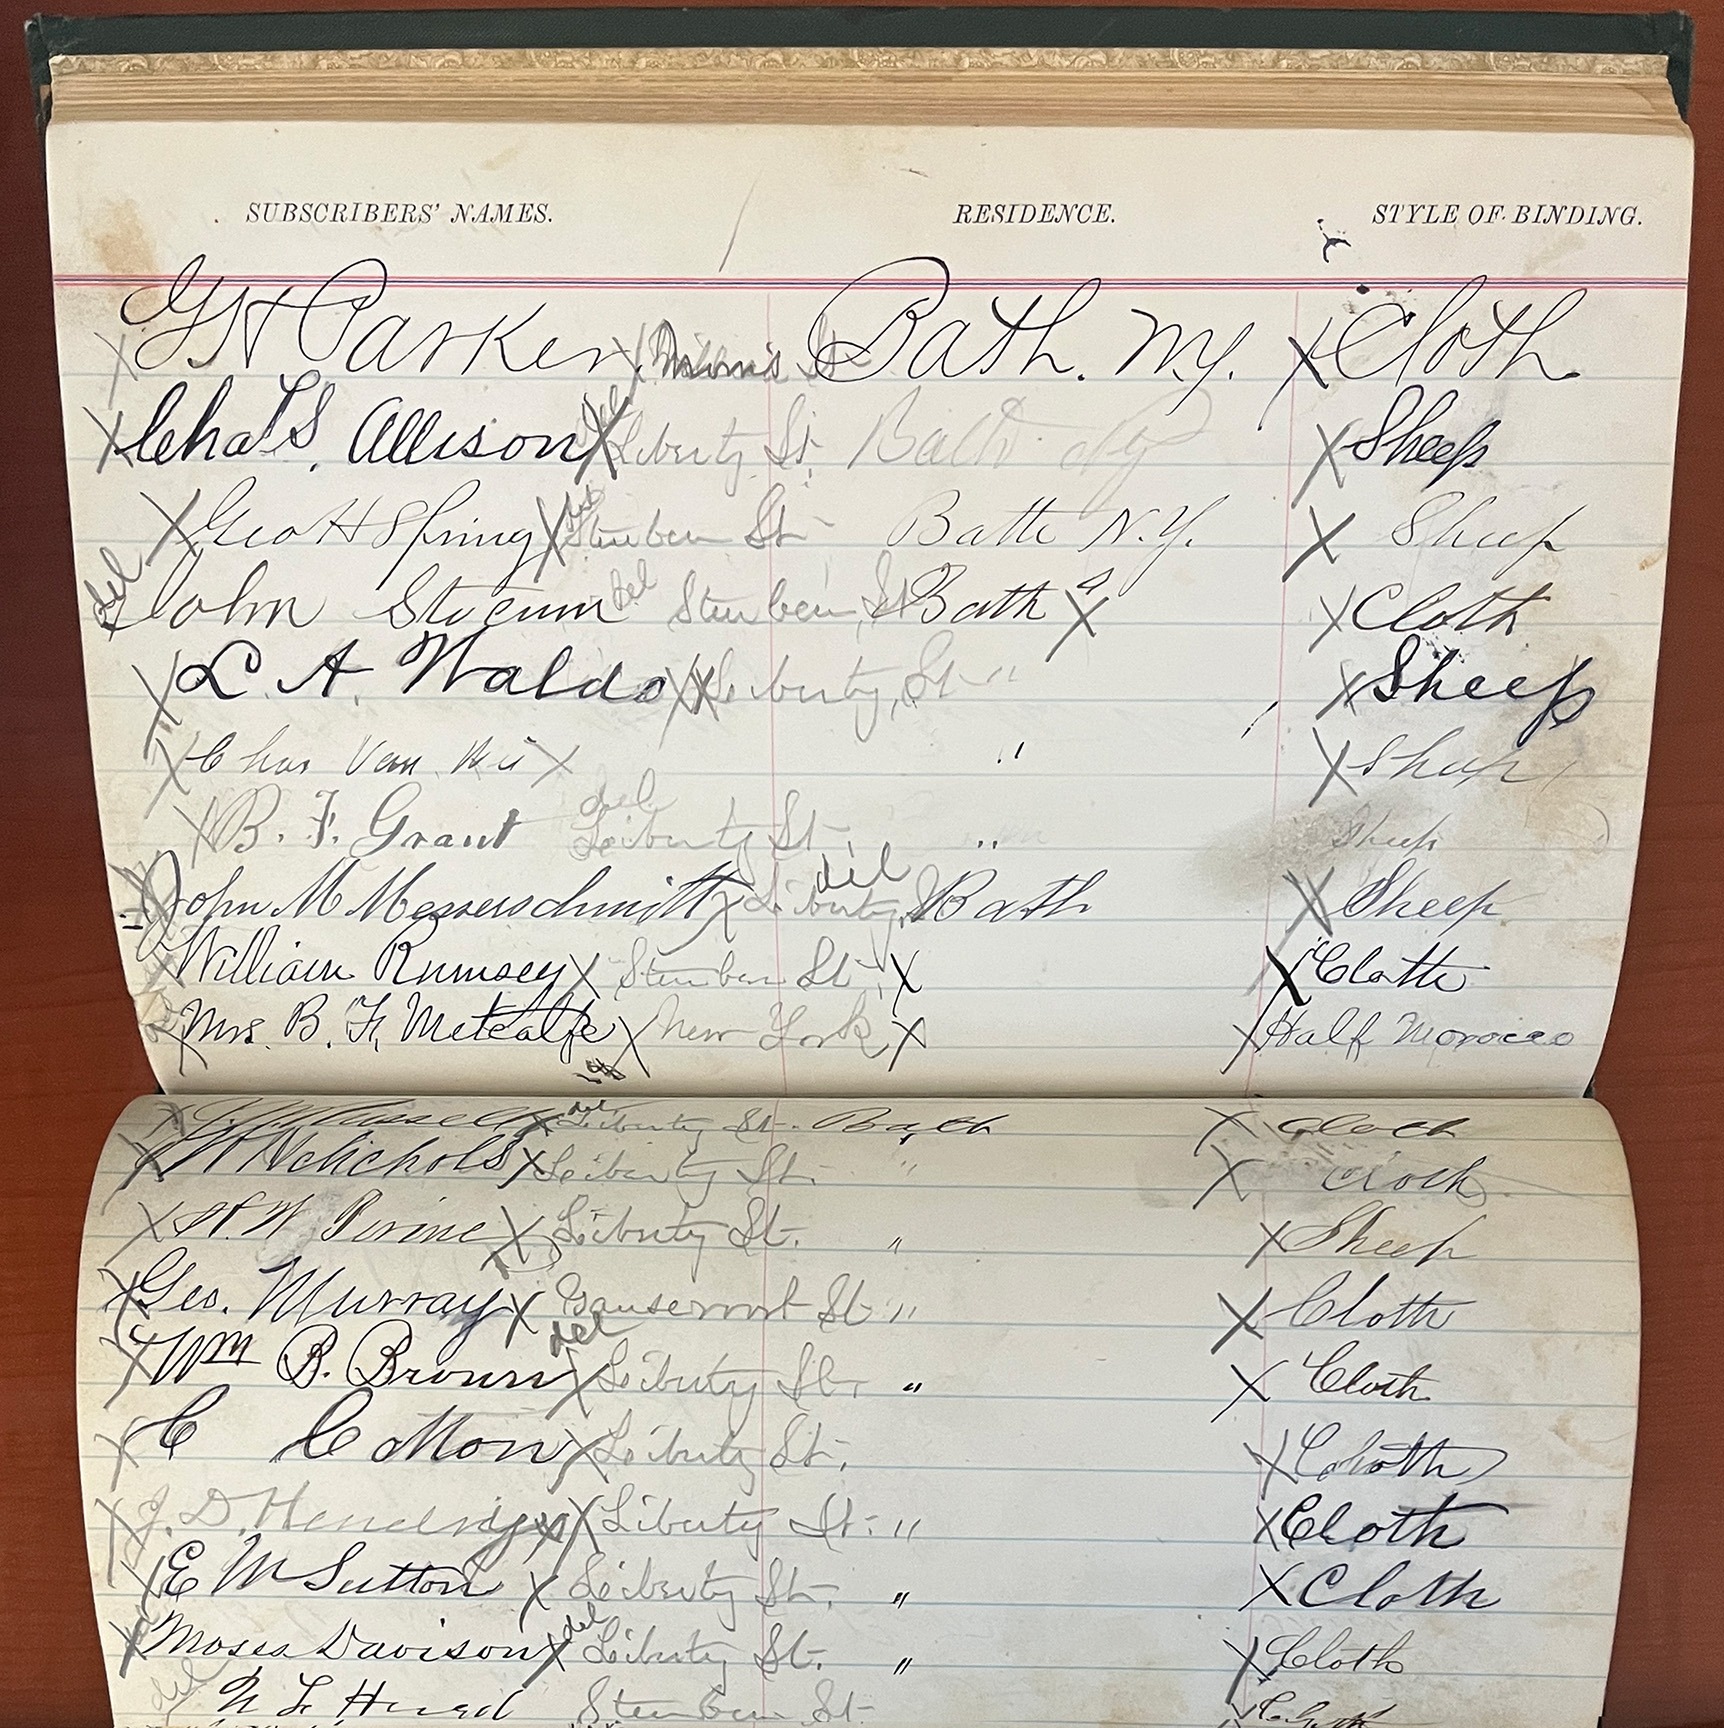 SUBSCRIBERS' NAMES. RESIDENCE. STYLE OF BINDING.
X G H Parker X St Bath. N.Y. X Cloth.
X Chas S. Allison X del Liberty St. Bath NY X Sheep
X Geo H Spring X del Steuben St Bath N.Y. X Sheep
del John Slocum del Steuben St Bath " X X Cloth
X L. A. Waldo X X Liberty St " X Sheep
X Chas Van X " X Sheep
X B. F. Grant del Liberty St. " Sheep
John M Messerschmitt X Liberty St del Bath X Sheep
X William Rumsey X Steuben St. X X Cloth
X Mrs. B. F. Metcalfe X New York X X Half Morocco
X Russell X del Liberty St. Bath X Cloth
X W H Nichols X Liberty St. " X Cloth
X H. W. Perine X Liberty St. " X Sheep
X Geo. Murray X Gansevoort St. " X Cloth
X Wm B. Brown X del Liberty St. " X Cloth
X C Cotton X Liberty St. X Cloth
X J. D. Hendryx X X Liberty St. " X Cloth
X E M Sutton X Liberty St. " X Cloth
X Moses Davison X del Liberty St. " X Cloth
del Steuben St. X Cloth